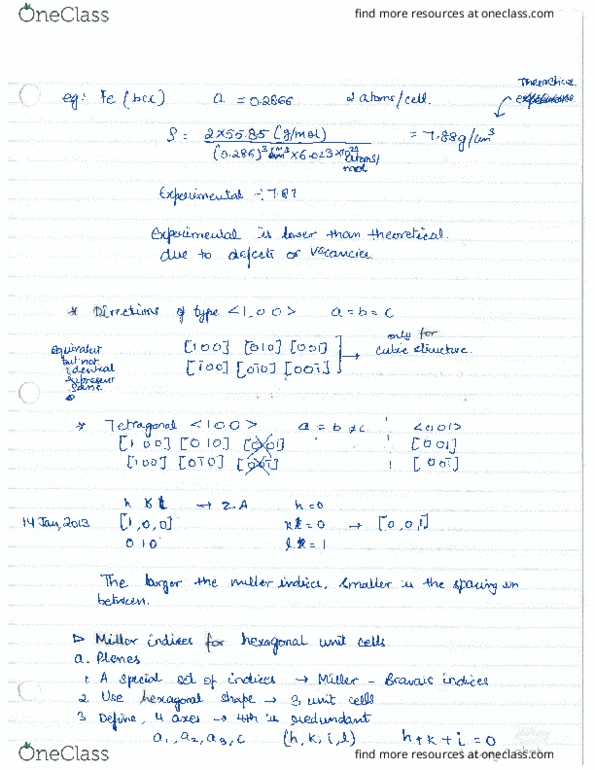 OneClass
find more resources at oneclass.com
eg: Fe (bcc) a = 0.2866 2 atoms/cell. Theoretical
ρ = 2×55.85 (g/mol) = 7.88g/cm³
(0.286)³ ×6.023×10 atoms/mol
Experimental ÷ 7.87
Experimental is lower than theoretical
due to defects or vacancies
* Directions of type <1,00> a=b=c
equivalent but not idential represent same
[100] [010] [001]
[1̄00] [01̄0] [001̄]
only for cubic structure.
* Tetragonal <100> a = b ≠ c <001>
[100] [010] [001] [001]
[1̄00] [01̄0] [001̄] [001̄]
h k l → 2.A h=0
14 Jan, 2013 [1,0,0] k = 0 → [0,0,1]
0 1 0 l = 1
The larger the miller indices, smaller is the spacing in
between.
▷ Miller indices for hexagonal unit cells
a. Planes
1. A special set of indices → Miller - Bravais indices
2. Use hexagonal shape → 3 unit cells
3 Define, 4 axes → 4th is redundant
a₁, a₂, a₃, c (h, k, i, l) h+k+i = 0
OneClass
find more resources at oneclass.com